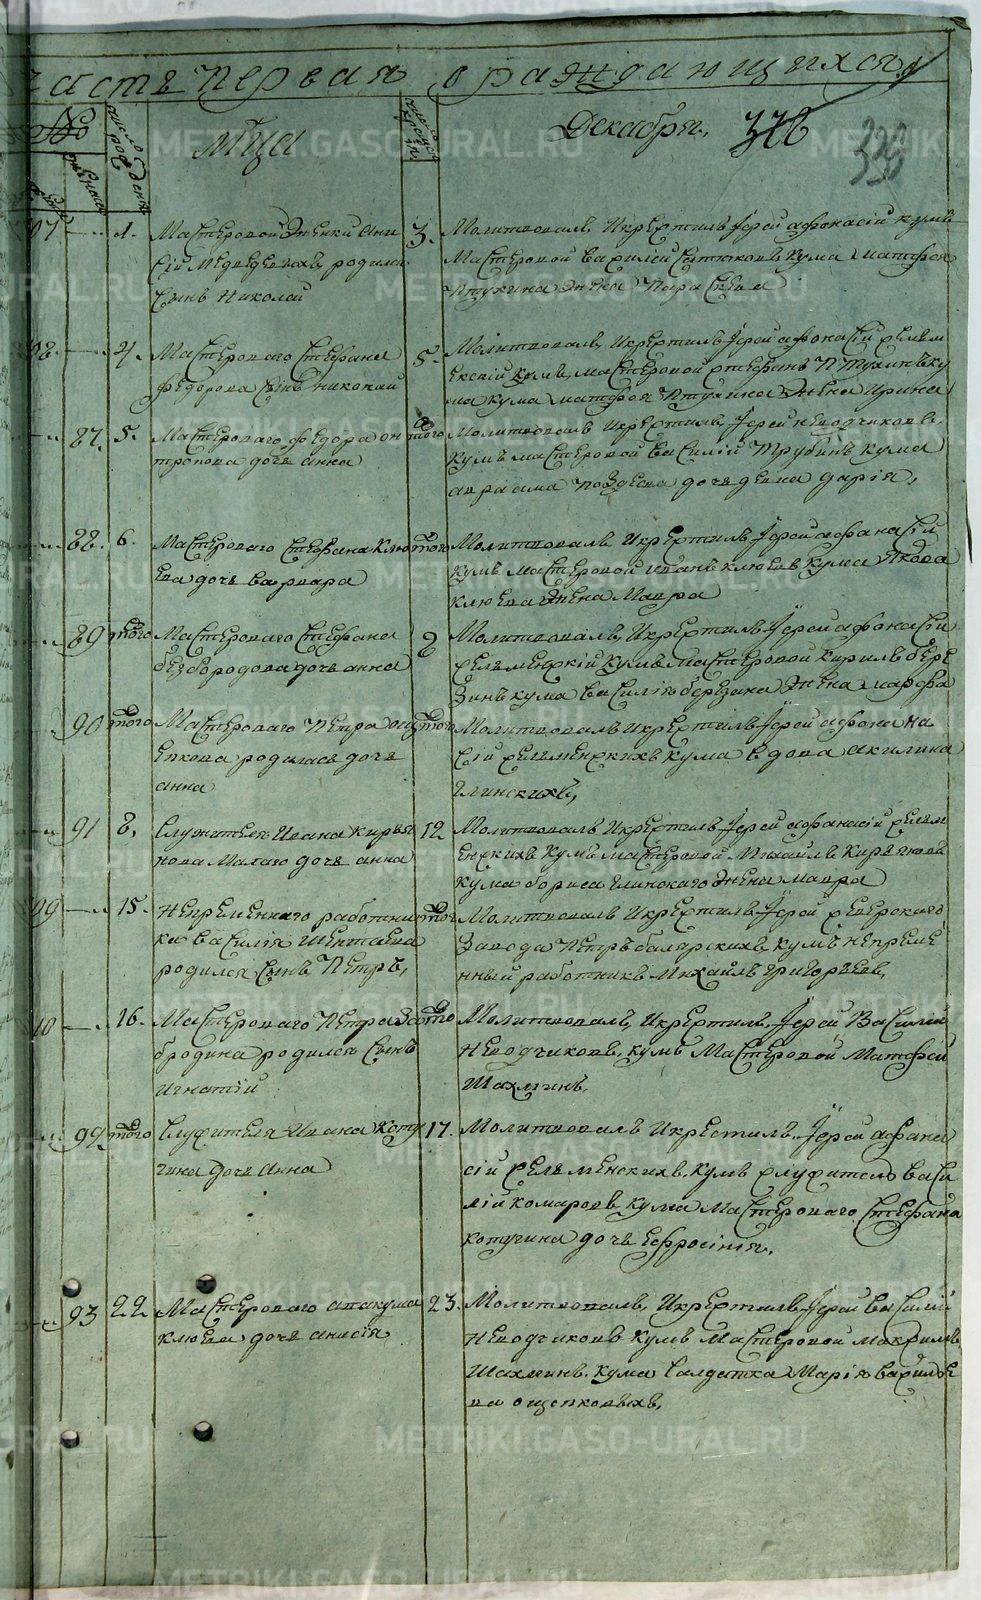 часть первая о раждающихся
Мца Декабря. 376
1. Мастеровой Женки Ани
сіи Медведевыхъ родился
сынъ Николай
3. Молитвовалъ Икрестилъ Іерей афонасій кумъ
Мастеровой
кума матфея
Птухина Жена Параскева
4. Мастероваго Стефана
федорова сынъ николай
5. Молитвовалъ, Икрестилъ Іерей афонасій сельм
енскій кумъ, мастеровой стефанъ
кума матфея Птухина Жена Ирина
87. 5. Мастероваго федора он
тропова дочь анна
того Молитвовалъ Икрестилъ, Іерей неводчиковъ,
кумъ мастеровой василій Трубинъ кума
авраама поздеева дочь девка дарія,
88. 6. Мастероваго Стефана Клю
ева дочь варвара
того Молитвовалъ Икрестилъ Іерей афанасій
кумъ мастеровой иванъ клюевъ кума Якова
клюева жена Мавра
89 того Мастероваго Стефана
безбородова дочь анна
8 Молитвовалъ, Икрестилъ Іерей афонасій
сельменскій кумъ Мастеровой Кирилъ бере
зинъ кума василія березина Жена марфа
90 того Мастероваго Петра ощ
епкова родилась дочь
анна
того Молитвовалъ Икрестилъ Іерей афона
сій сельменскихъ кума вдова акилина
Глинскихъ,
91 8, Служителя Ивана Кирья
нова Малаго дочь анна
12 Молитвовалъ Икрестилъ Іерей афанасій сельм
енскихъ кумъ мастеровой Михайлъ Кирьяновъ
кума бориса глинскаго Жена мавра
15. Непременнаго работни
ка василія Шентаева
родился сынъ Петръ,
того Молитвовалъ Икрестилъ Іерей северскаго
Завода Петръ боярскихъ кумъ непреме
нный работникъ Михайлъ григорьевъ,
16. Мастероваго Петра За
бродина родился сынъ
игнатій
того Молитвовалъ, Икрестилъ, Іерей Василій
Неводчиковъ, кумъ Мастеровой Матфей
Шахминъ,
92 того Служителя Ивана Коту
гина дочь анна
17. Молитвовалъ Икрестилъ, Іерей афана
сій сельменскихъ, кумъ служитель васи
лій комаровъ кума Мастероваго Стефана
котугина дочь ефросінія,
93 22. Мастероваго авакума
клюева дочь анисія
23. Молитвовалъ, Икрестилъ, Іерей василій
Неводчиковъ кумъ Мастеровой
Шахминъ, кума Салдатка Марія василье
ва ощепковыхъ,
METRIKI.GASO-URAL.RU